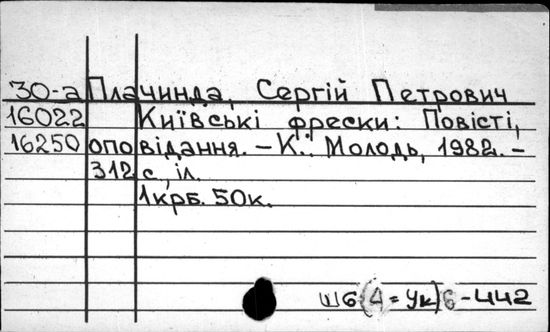 30-а Плачинда, Сергій Петрович
16022 Київські фрески: Повісті,
16250 оповідання. – К.: Молодь, 1982. –
312 с., іл.
1крб. 50к.
Ш6(4=Ук)6-442